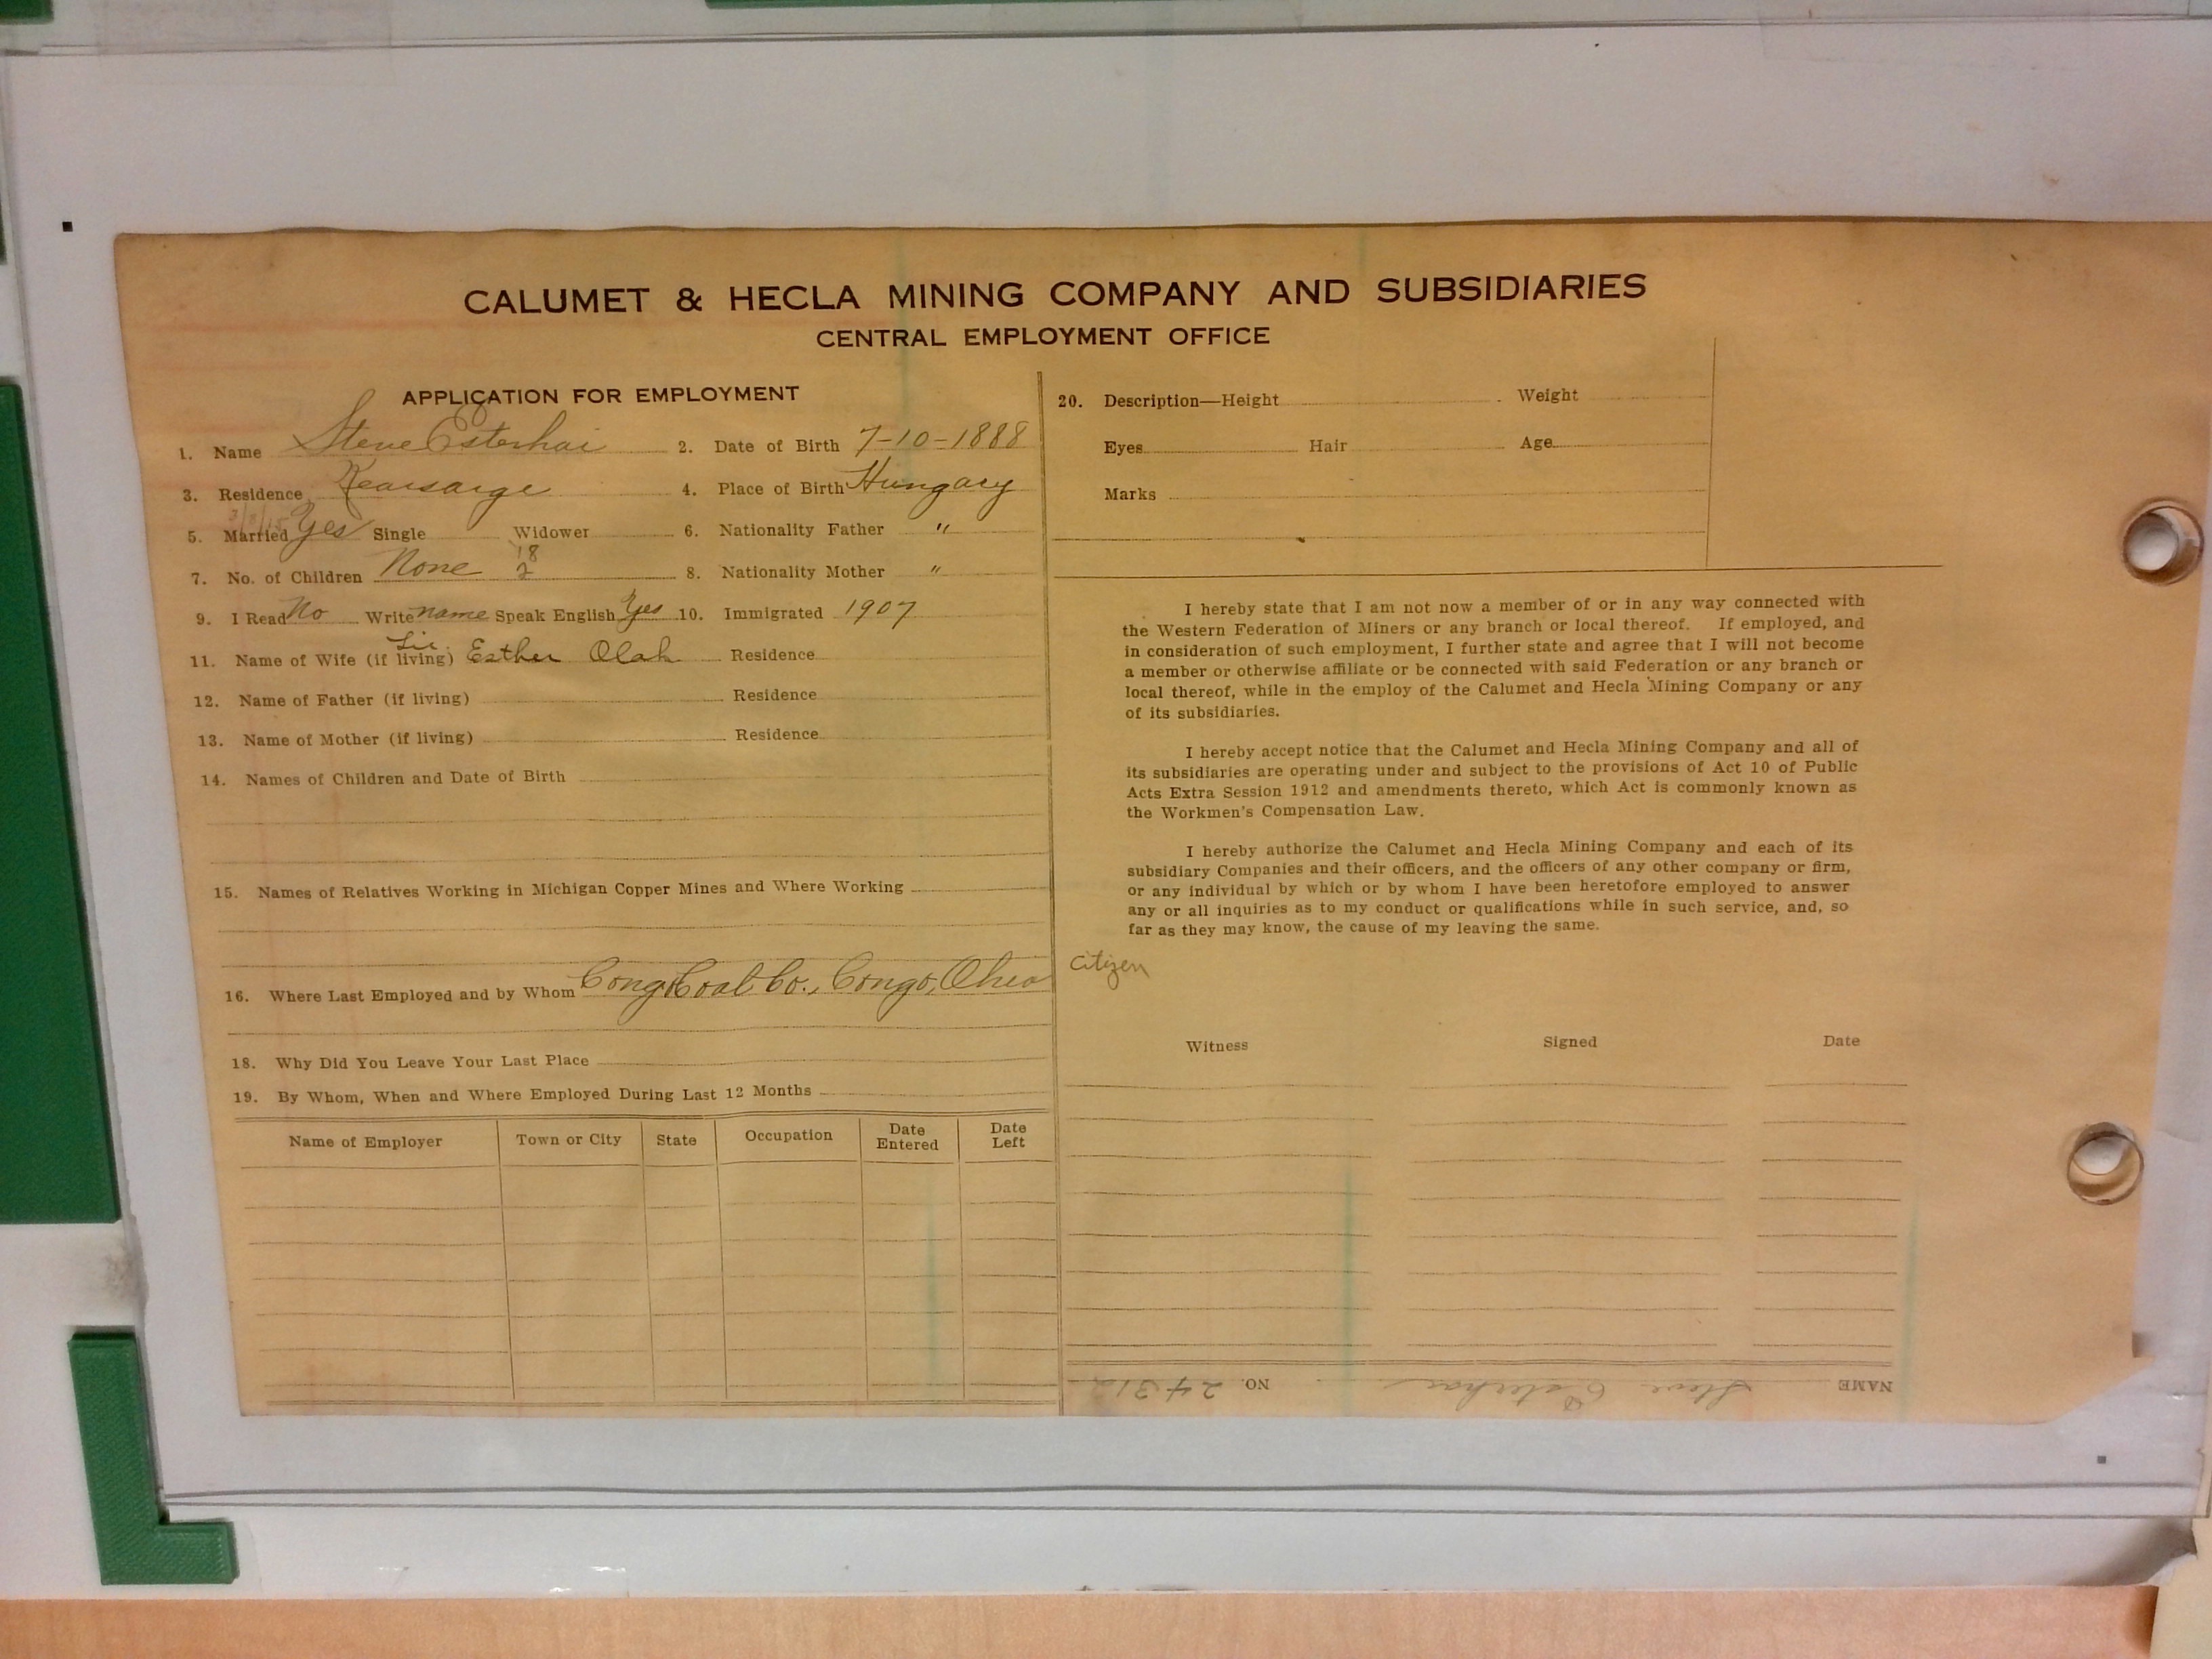 CALUMET & HECLA MINING COMPANY AND SUBSIDIARIES
CENTRAL EMPLOYMENT OFFICE
APPLICATION FOR EMPLOYMENT
1. Name Steve Esterhai 2. Date of Birth 7-10-1888
3. Residence Kearsarge 4. Place of Birth Hungary
5. Married Yes Single Widower 6. Nationality Father "
7. No. of Children None 18 2 8. Nationality Mother "
9. I Read No Write name Speak English Yes 10. Immigrated 1907
11. Name of Wife (if living) Esther Olah Residence
12. Name of Father (if living) Residence
13. Name of Mother (if living) Residence
14. Names of Children and Date of Birth
15. Names of Relatives Working in Michigan Copper Mines and Where Working
16. Where Last Employed and by Whom Congo Coal Co., Congo, Ohio
18. Why Did You Leave Your Last Place
19. By Whom, When and Where Employed During Last 12 Months
Name of Employer Town or City State Occupation Date Entered Date Left
20. Description—Height Weight
Eyes Hair Age
Marks
I hereby state that I am not now a member of or in any way connected with
the Western Federation of Miners or any branch or local thereof. If employed, and
in consideration of such employment, I further state and agree that I will not become
a member or otherwise affiliate or be connected with said Federation or any branch or
local thereof, while in the employ of the Calumet and Hecla Mining Company or any
of its subsidiaries.
I hereby accept notice that the Calumet and Hecla Mining Company and all of
its subsidiaries are operating under and subject to the provisions of Act 10 of Public
Acts Extra Session 1912 and amendments thereto, which Act is commonly known as
the Workmen's Compensation Law.
I hereby authorize the Calumet and Hecla Mining Company and each of its
subsidiary Companies and their officers, and the officers of any other company or firm,
or any individual by which or by whom I have been heretofore employed to answer
any or all inquiries as to my conduct or qualifications while in such service, and, so
far as they may know, the cause of my leaving the same.
Citizen
Witness Signed Date
NAME Steve Esterhai NO. 24312